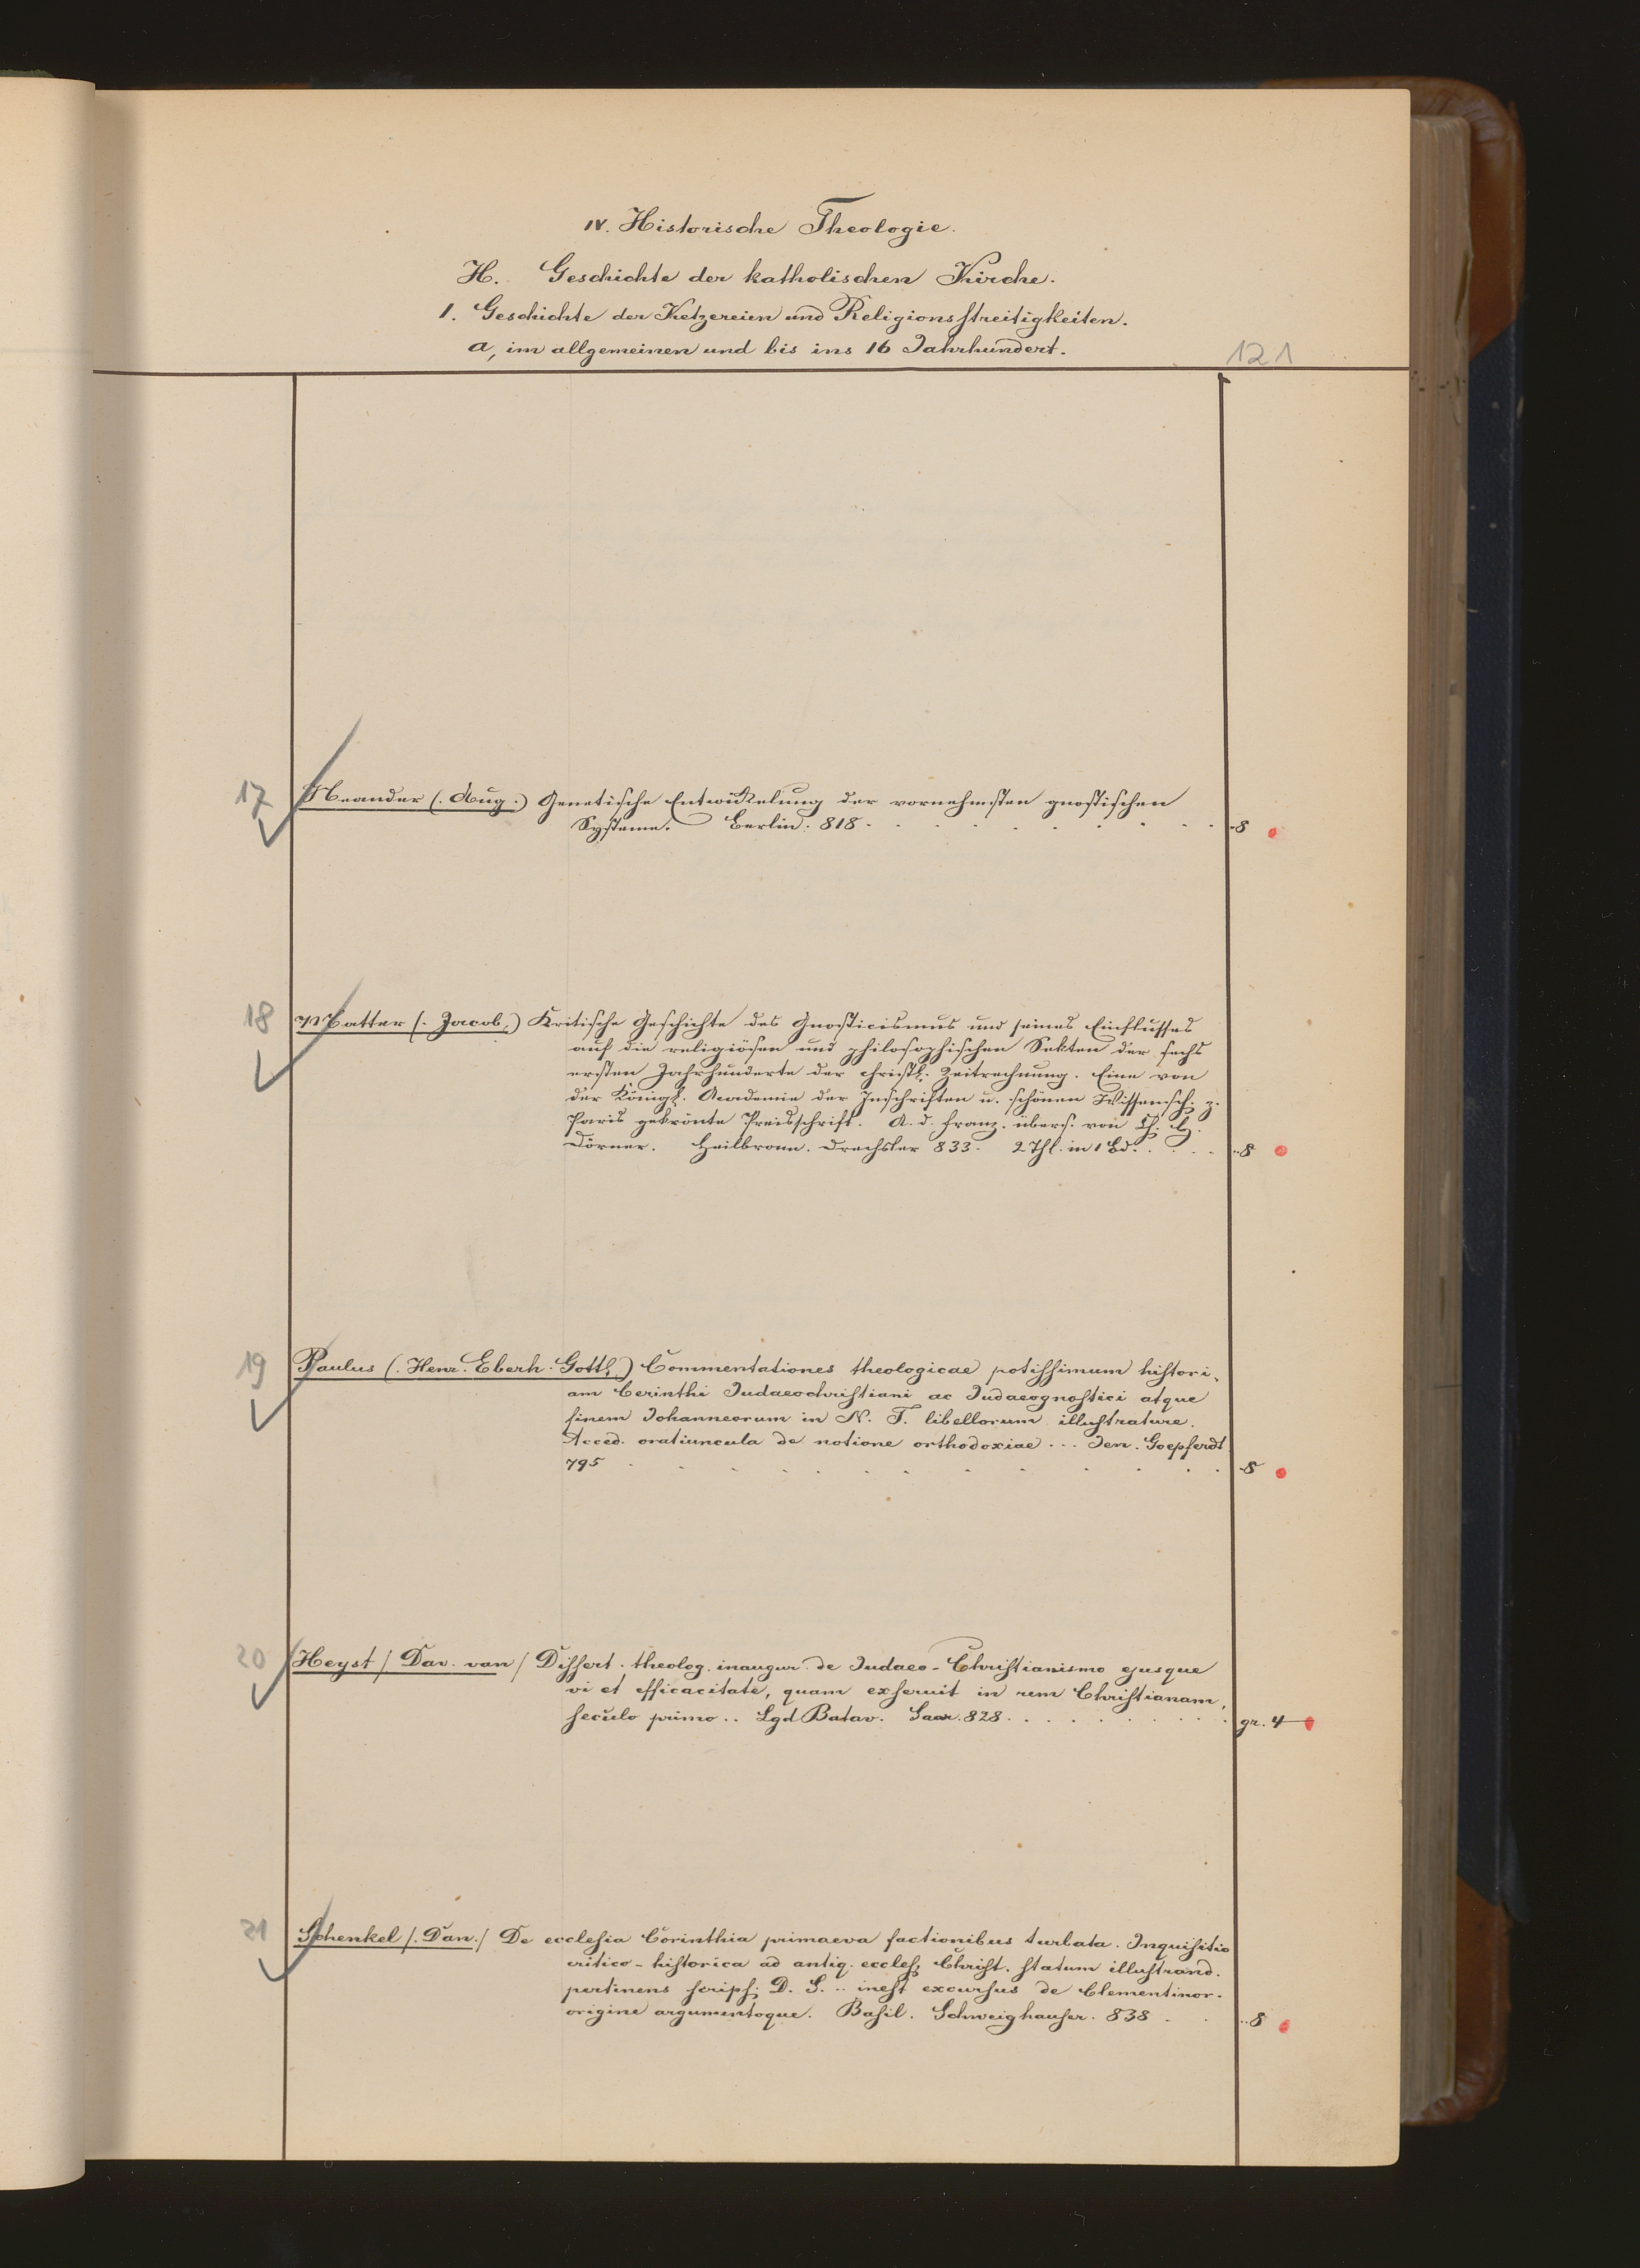 IV. Historische Theologie.
H. Geschichte der katholischen Kirche.
1. Geschichte der Ketzereien und Religionsstreitigkeiten.
a, im allgemeinen und bis ins 16 Jahrhundert.
121
17 Neander (. Aug.) Genetische Entwickelung der vornehmsten gnostischen
Systeme. Berlin. 818. 8
18 Matter (. Jacob,) Kritische Geschichte des Gnosticismus und seines Einflusses
auf die religiösen und philosophischen Sekten der sechs
ersten Jahrhunderte der christl. Zeitrechnung. Eine von
der Königl. Academie der Inschriften u. schönen Wissensch. z.
Paris gekrönte Preisschrift. A. d. franz. übers. von Ch. H.
Dörner. Heilbronn. Drechsler 833. 2 Thl. in 1 Bd. 8
19 Paulus (. Henr. Eberh. Gottl.) Commentationes theologicae potiſſimum hiſtori-
am Cerinthi Judaeochriſtiani ac Judaeognoſtici atque
finem Johanneorum in N. T. libellorum illuſtrature.
Acced. oratiuncula de notione orthodoxiae ... Jen. Goepferdt
795 8
20 Heyst / Dav. van / Diſſert. theolog. inaugur. de Judaeo-Chriſtianismo ejusque
vi et efficacitate, quam exſeruit in rem Chriſtianam,
ſeculo primo .. Lgd Batav. 828. gr. 4
21 Schenkel /. Dan. / De eccleſia Corinthia primaeva factionibus turbata. Inquiſitio
critico-hiſtorica ad antiq. eccleſ. Chriſt. ſtatum illuſtrand.
pertinens ſcripſ. D. S. .. ineſt excurſus de Clementinor.
origine argumentoque. Baſil. Schweighauſer. 838 8